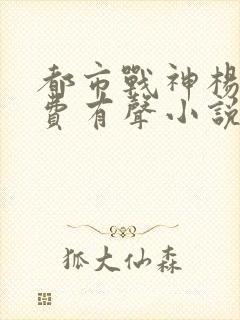 都市戰神楊
費有聲小說
狐大仙森